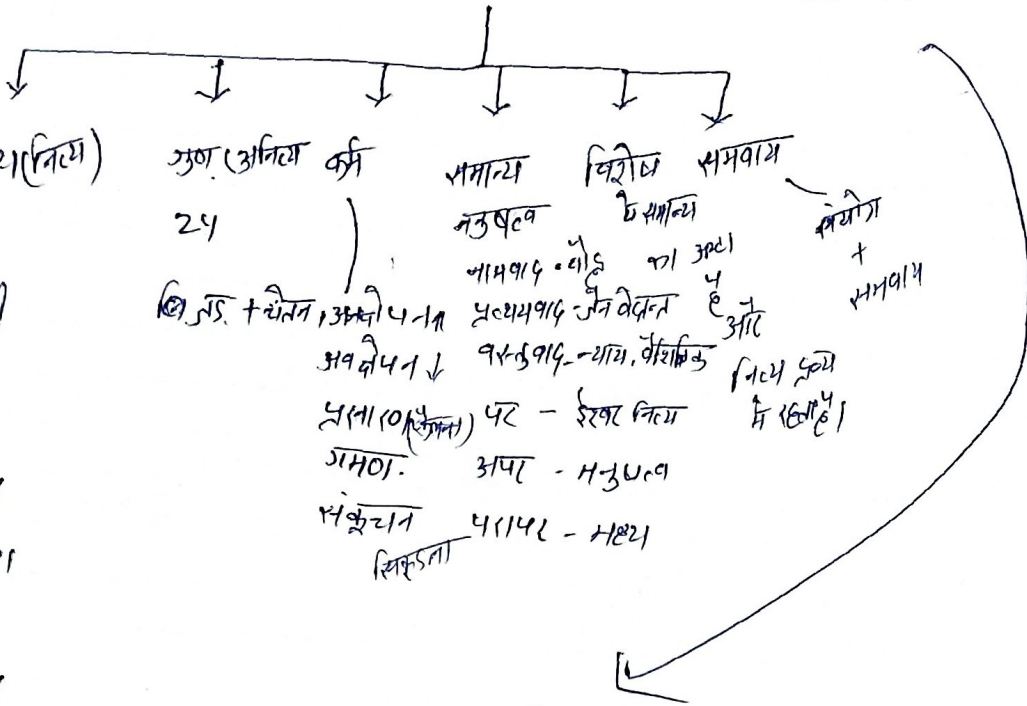 (नित्य)
गुण (अनित्य
24
जड़ + चेतन
कर्म
अवक्षेपन ↓
प्रसारण (फैलना)
गमण.
संकूचन
सिकुड़ना
समान्य
मनुषत्व
नामवाद - बौद्ध
प्रत्ययवाद - जैन वेदान्त
वस्तुवाद - न्याय, वैशेषिक
पर - ईश्वर नित्य
अपर - मनुषत्व
परापर - मध्य
विशेष
ये समान्य
का उल्टा
है
और
नित्य द्रव्य
में रहता है।
समवाय
संयोग
+
समवाय